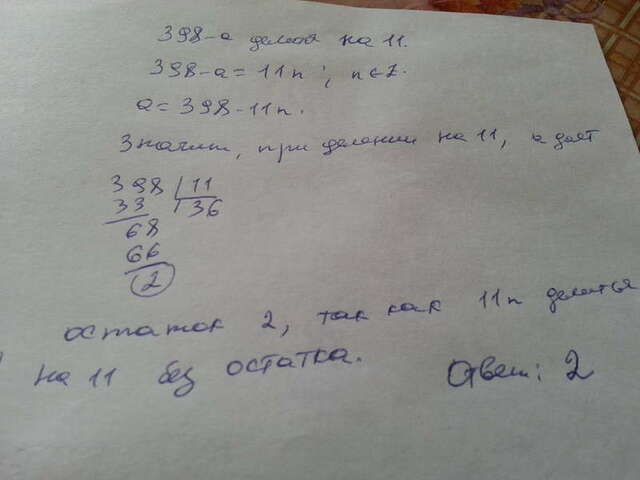 398-a делится на 11.
398-a = 11n ; n∈Z.
a = 398-11n.
Значит, при делении на 11, a даёт
398 | 11
33 | 36
68
66
2
остаток 2, так как 11n делиться
на 11 без остатка.
Ответ: 2